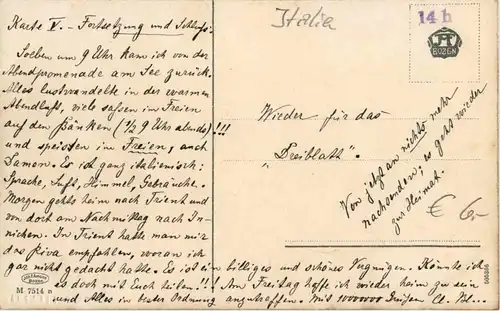 Karte V. - Fortsetzung und Schluß:
Soeben um 9 Uhr kam ich von der
Abendpromenade am See zurück.
Alles lustwandelte in der warmen
Abendluft, viele saßen im Freien
auf den Bänken (½ 9 Uhr abends)!!!
und speisten im Freien, auch
Damen. Es ist ganz italienisch:
Sprache, Luft, Himmel, Gebräuche.
Morgen gehts heim nach Trient und
von dort am Nachmittag nach In-
nichen. In Trient hatte man mir
das Riva empfohlen, woran ich
gar nicht gedacht hatte. Es ist ein billiges und schönes Vergnügen. Könnte ich
es doch mit Euch teilen!!! Am Freitag hoffe ich wieder heim zu sein
und Alles in bester Ordnung anzutreffen. Mit 1000000 Grüßen
Italia
14 h
BOZEN
Wieder für das
"Dreiblatt".
Von jetzt an nichts mehr
nachsenden; es geht wieder
zur Heimat.
€ 6,-
BOZEN
M 7514 n